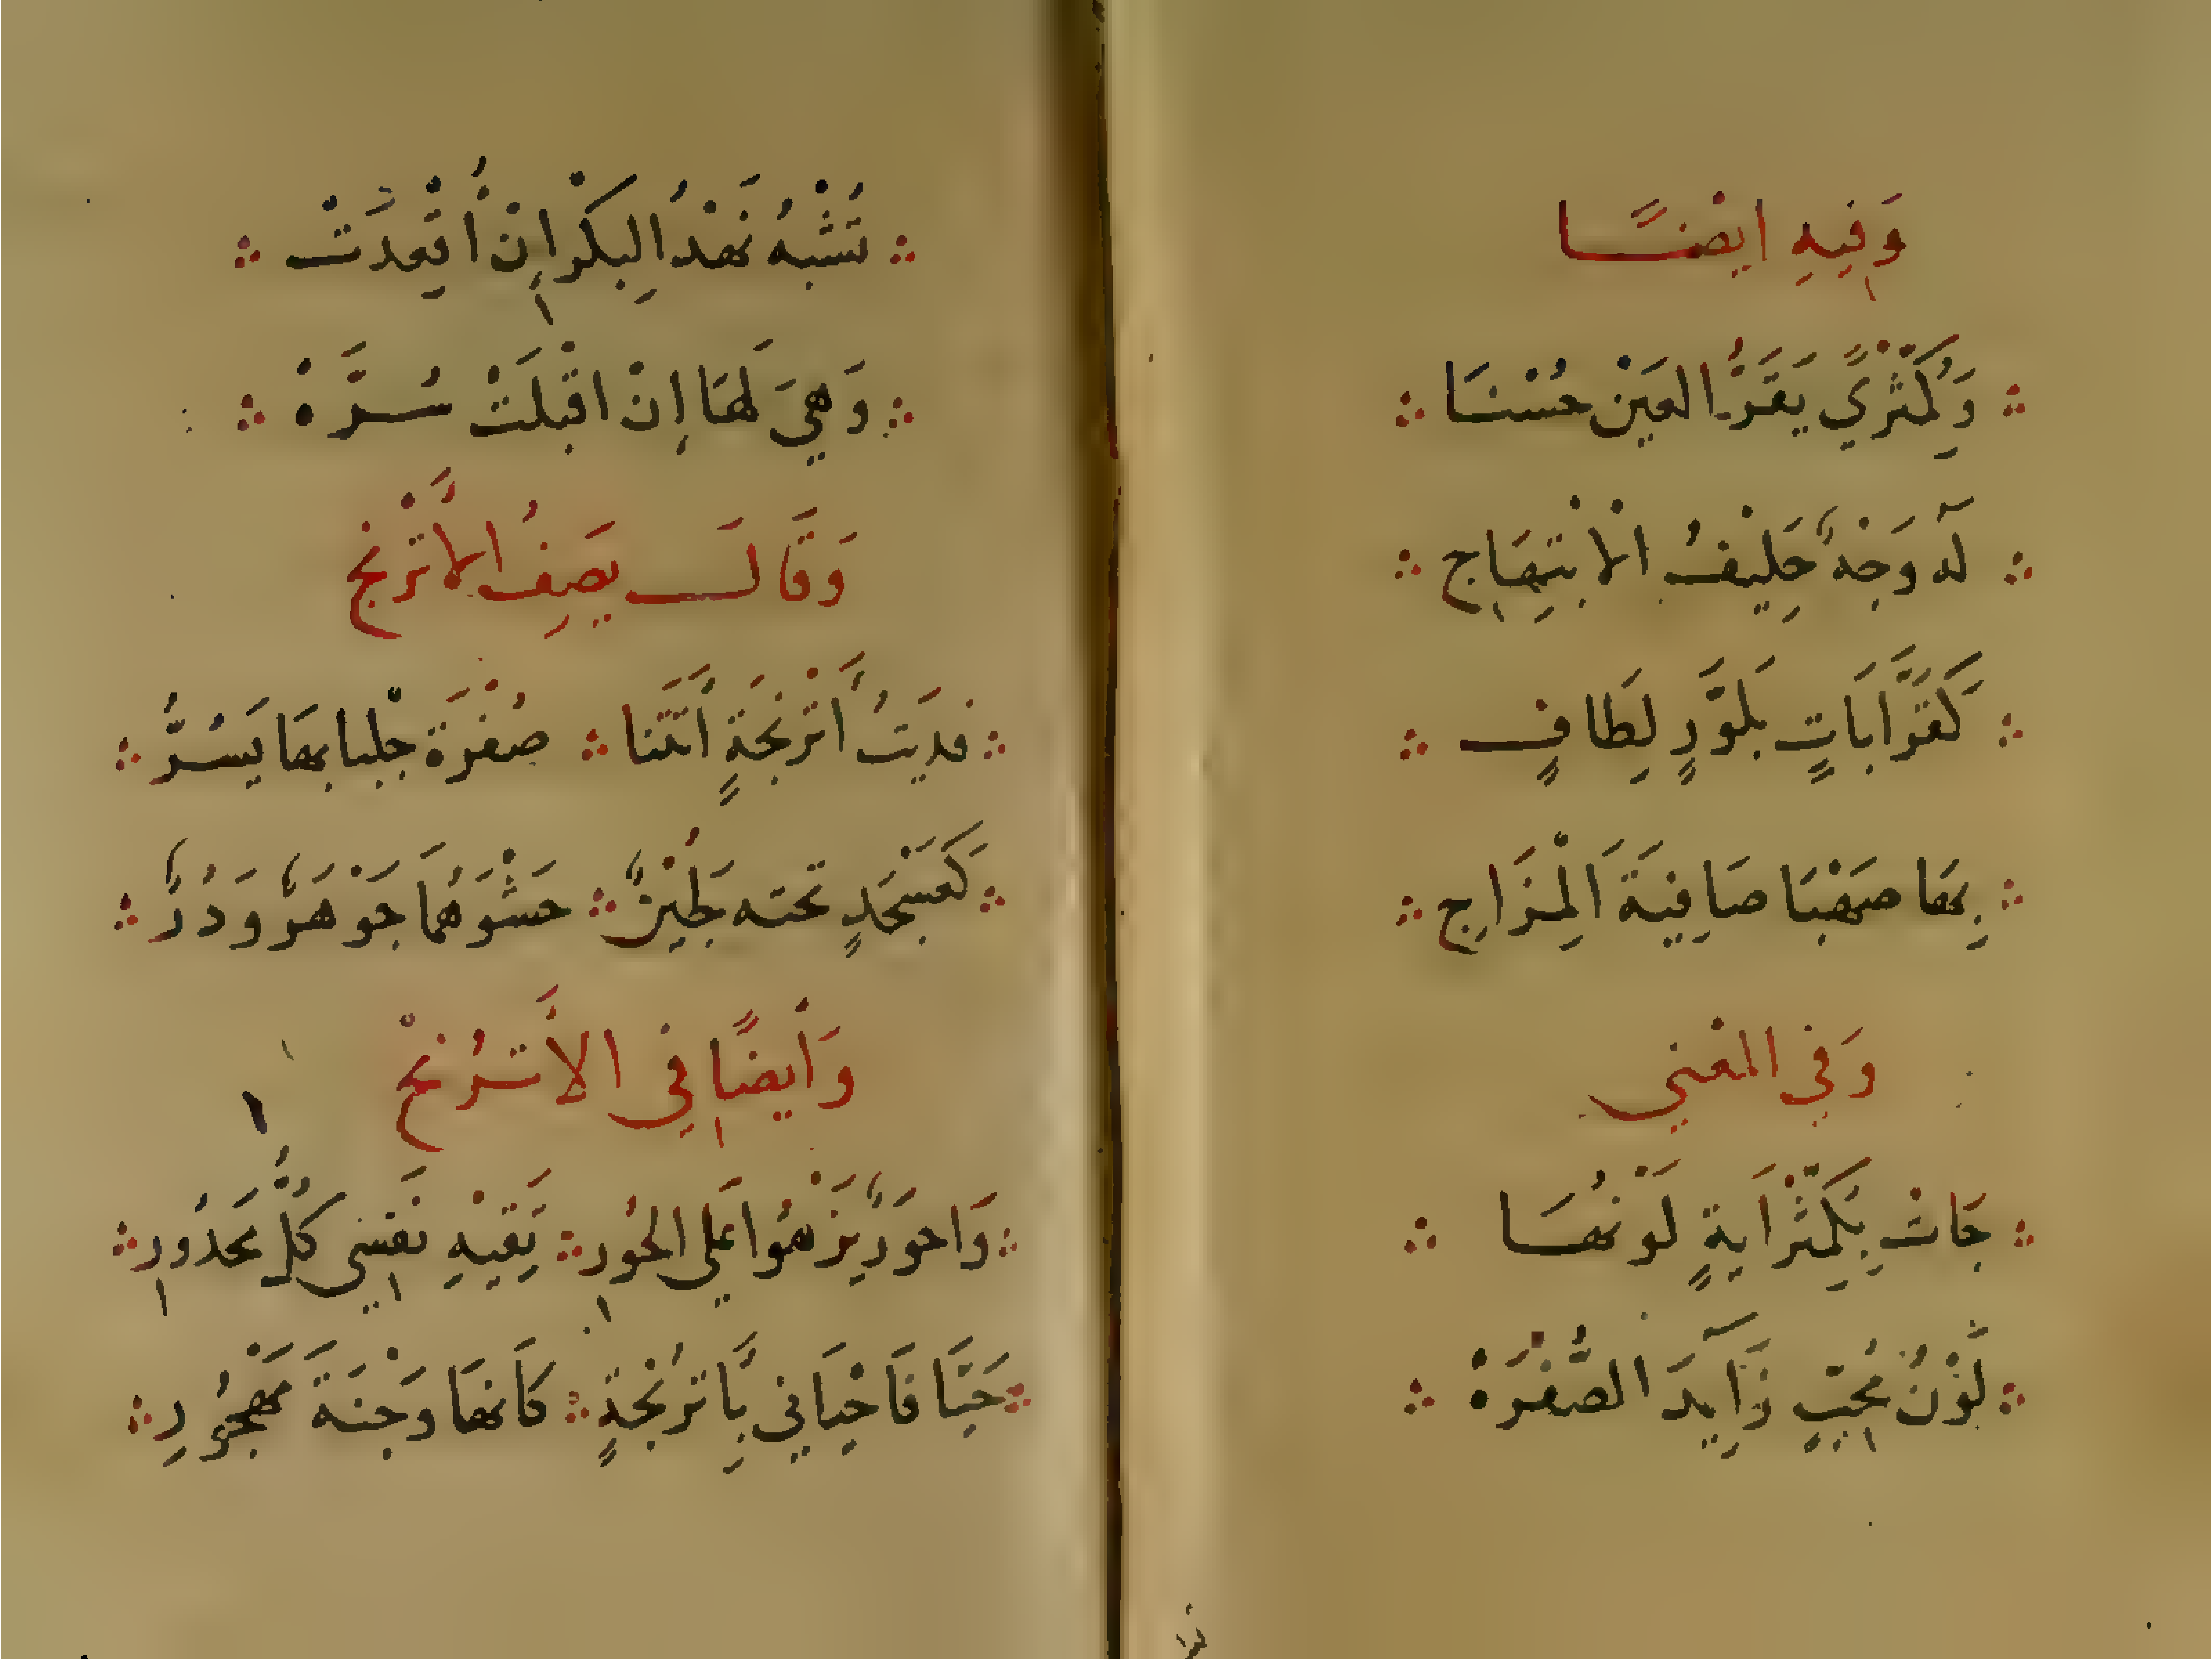 وَفِيهِ ايْضًا
وَكُمَّثْرًي يَقَرُّ العَيْن حُسْنَا
لَه وَجْهٌ حَلِيْفُ الْابْتِهَاج
كَقَرَّابَاتٍ بَلَوَّرٍ لِطَافٍ
بِهَا صَهْبَا صَافِيَةَ الْمِزَاجِ
وَفي المغني
جَات بِكُمَّثْرَايةٍ لَوْنُهَا
لَوْنُ مُحِبٍّ زَايِدَ الصُّفْرَهْ
تُشْبِهُ نَهْدُ البِكْرِ انْ أُقْعِدَتْ
وَهِيَ لَهَا اِنْ اقْبَلَتْ سُرَّهْ
وَقَالَ يَصِفُ الأَتْرنج
فديَتُ أَتْرنْجَةٍ أَتَتنا صُفْرَة جْلبابهَا يَسُرُّ
كَعَسْجَدٍ تحته لَجِيْنٌ حَشْوَهُمَا جَوْهَرٌ وَدُرٌّ
وَأيضًا في الأَترُنجْ
وَاحوَرٌ يَزْهُوا عَلي الحُور تَقيْهِ نَفسِي كُلُّ محَذُورِ
حَيَّا فَاحْيَاني بِأَترُنْجةٍ كَأنهَا وَجْنَةَ مَهْجُوُرِ